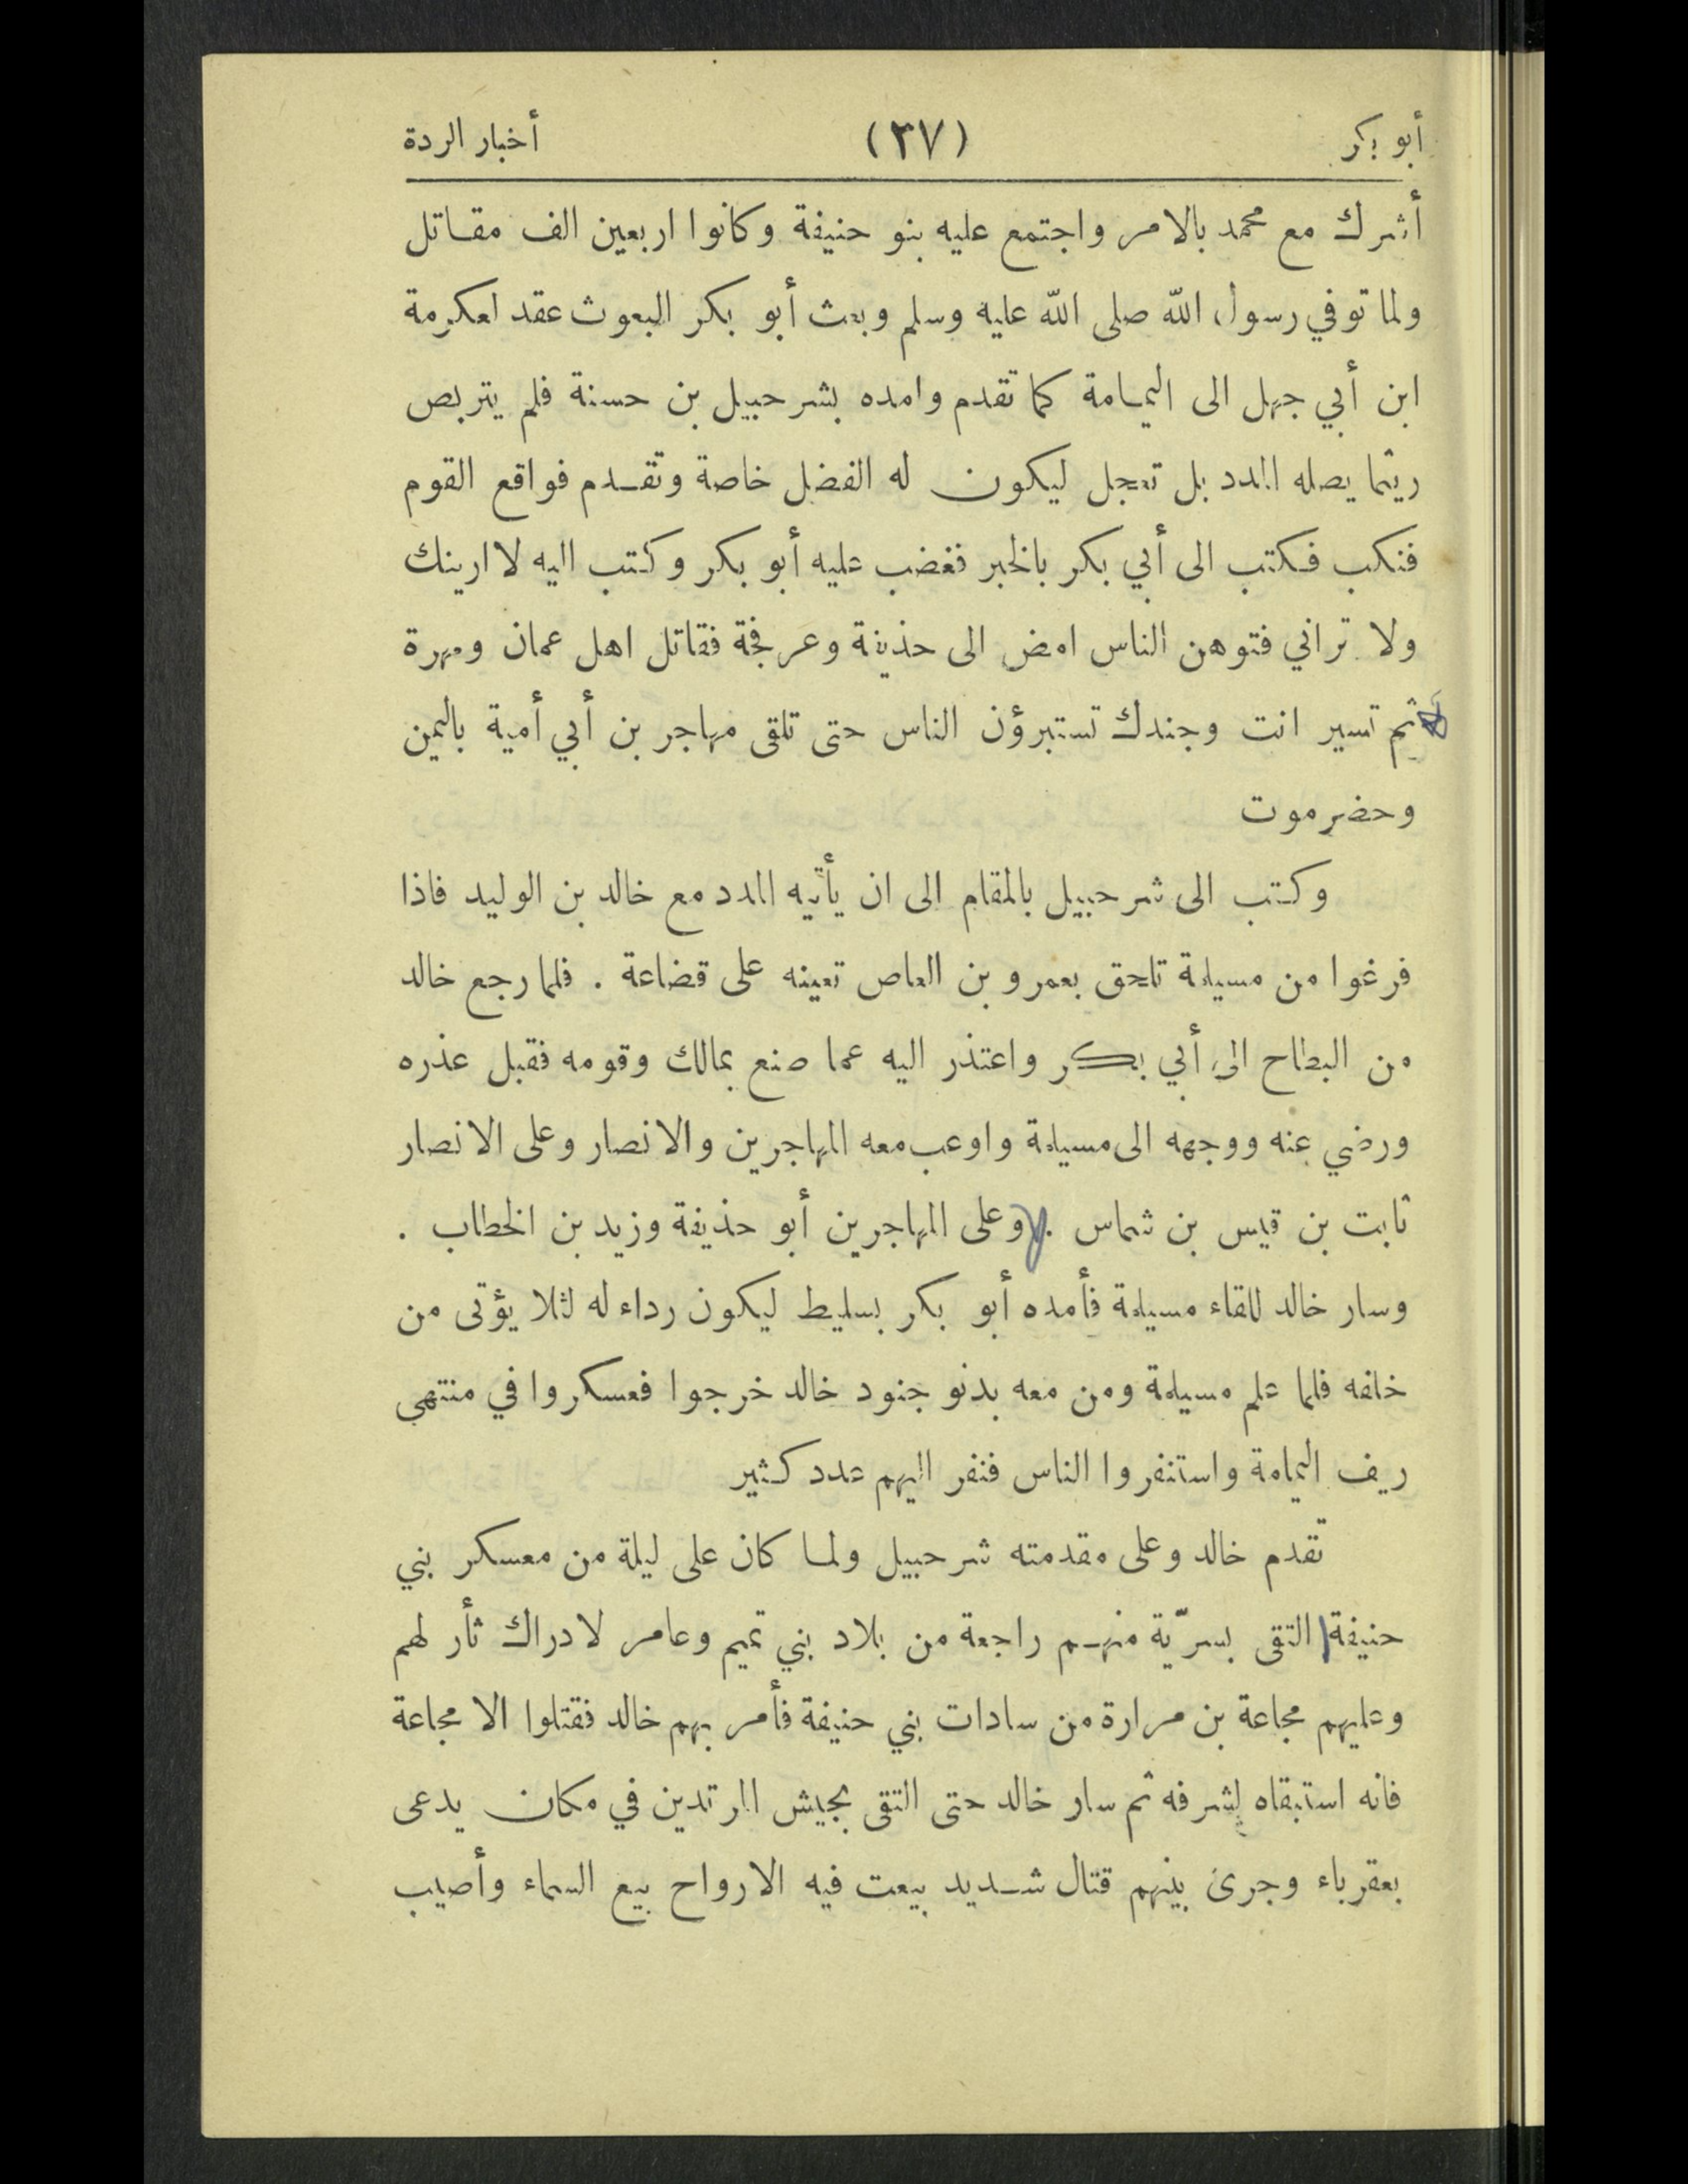 أبو بكر (٣٧) أخبار الردة
أشرك مع محمد بالامر واجتمع عليه بنو حنيفة وكانوا اربعين الف مقاتل
ولما توفي رسول الله صلى الله عليه وسلم وبعث أبو بكر البعوث عقد لعكرمة
ابن أبي جهل الى اليمامة كما تقدم وامده بشرحبيل بن حسنة فلم يتربص
ريثما يصله المدد بل تعجل ليكون له الفضل خاصة وتقدم فواقع القوم
فنكب فكتب الى أبي بكر بالخبر فغضب عليه أبو بكر وكتب اليه لا ارينك
ولا تراني فتوهن الناس امض الى حذيفة وعرفجة فقاتل اهل عمان ومهرة
ثم تسير انت وجندك تستبرؤن الناس حتى تلقى مهاجر بن أبي أمية باليمن
وحضرموت
وكتب الى شرحبيل بالمقام الى ان يأتيه المدد مع خالد بن الوليد فاذا
فرغوا من مسيلمة تلحق بعمرو بن العاص تعينه على قضاعة . فلما رجع خالد
من البطاح الى أبي بكر واعتذر اليه عما صنع بمالك وقومه فقبل عذره
ورضي عنه ووجهه الى مسيلمة واوعب معه المهاجرين والانصار وعلى الانصار
ثابت بن قيس بن شماس . وعلى المهاجرين أبو حذيفة وزيد بن الخطاب .
وسار خالد للقاء مسيلمة فأمده أبو بكر بسليط ليكون رداء له لئلا يؤتى من
خلفه فلما علم مسيلمة ومن معه بدنو جنود خالد خرجوا فعسكروا في منتهى
ريف اليمامة واستنفروا الناس فنفر اليهم عدد كثير
تقدم خالد وعلى مقدمته شرحبيل ولما كان على ليلة من معسكر بني
حنيفة التقى بسرّية منهم راجعة من بلاد بني تميم وعامر لادراك ثأر لهم
وعليهم مجاعة بن مرارة من سادات بني حنيفة فأمر بهم خالد فقتلوا الا مجاعة
فانه استبقاه لشرفه ثم سار خالد حتى التقى بجيش المرتدين في مكان يدعى
بعقرباء وجرى بينهم قتال شديد بيعت فيه الارواح بيع السماء وأصيب